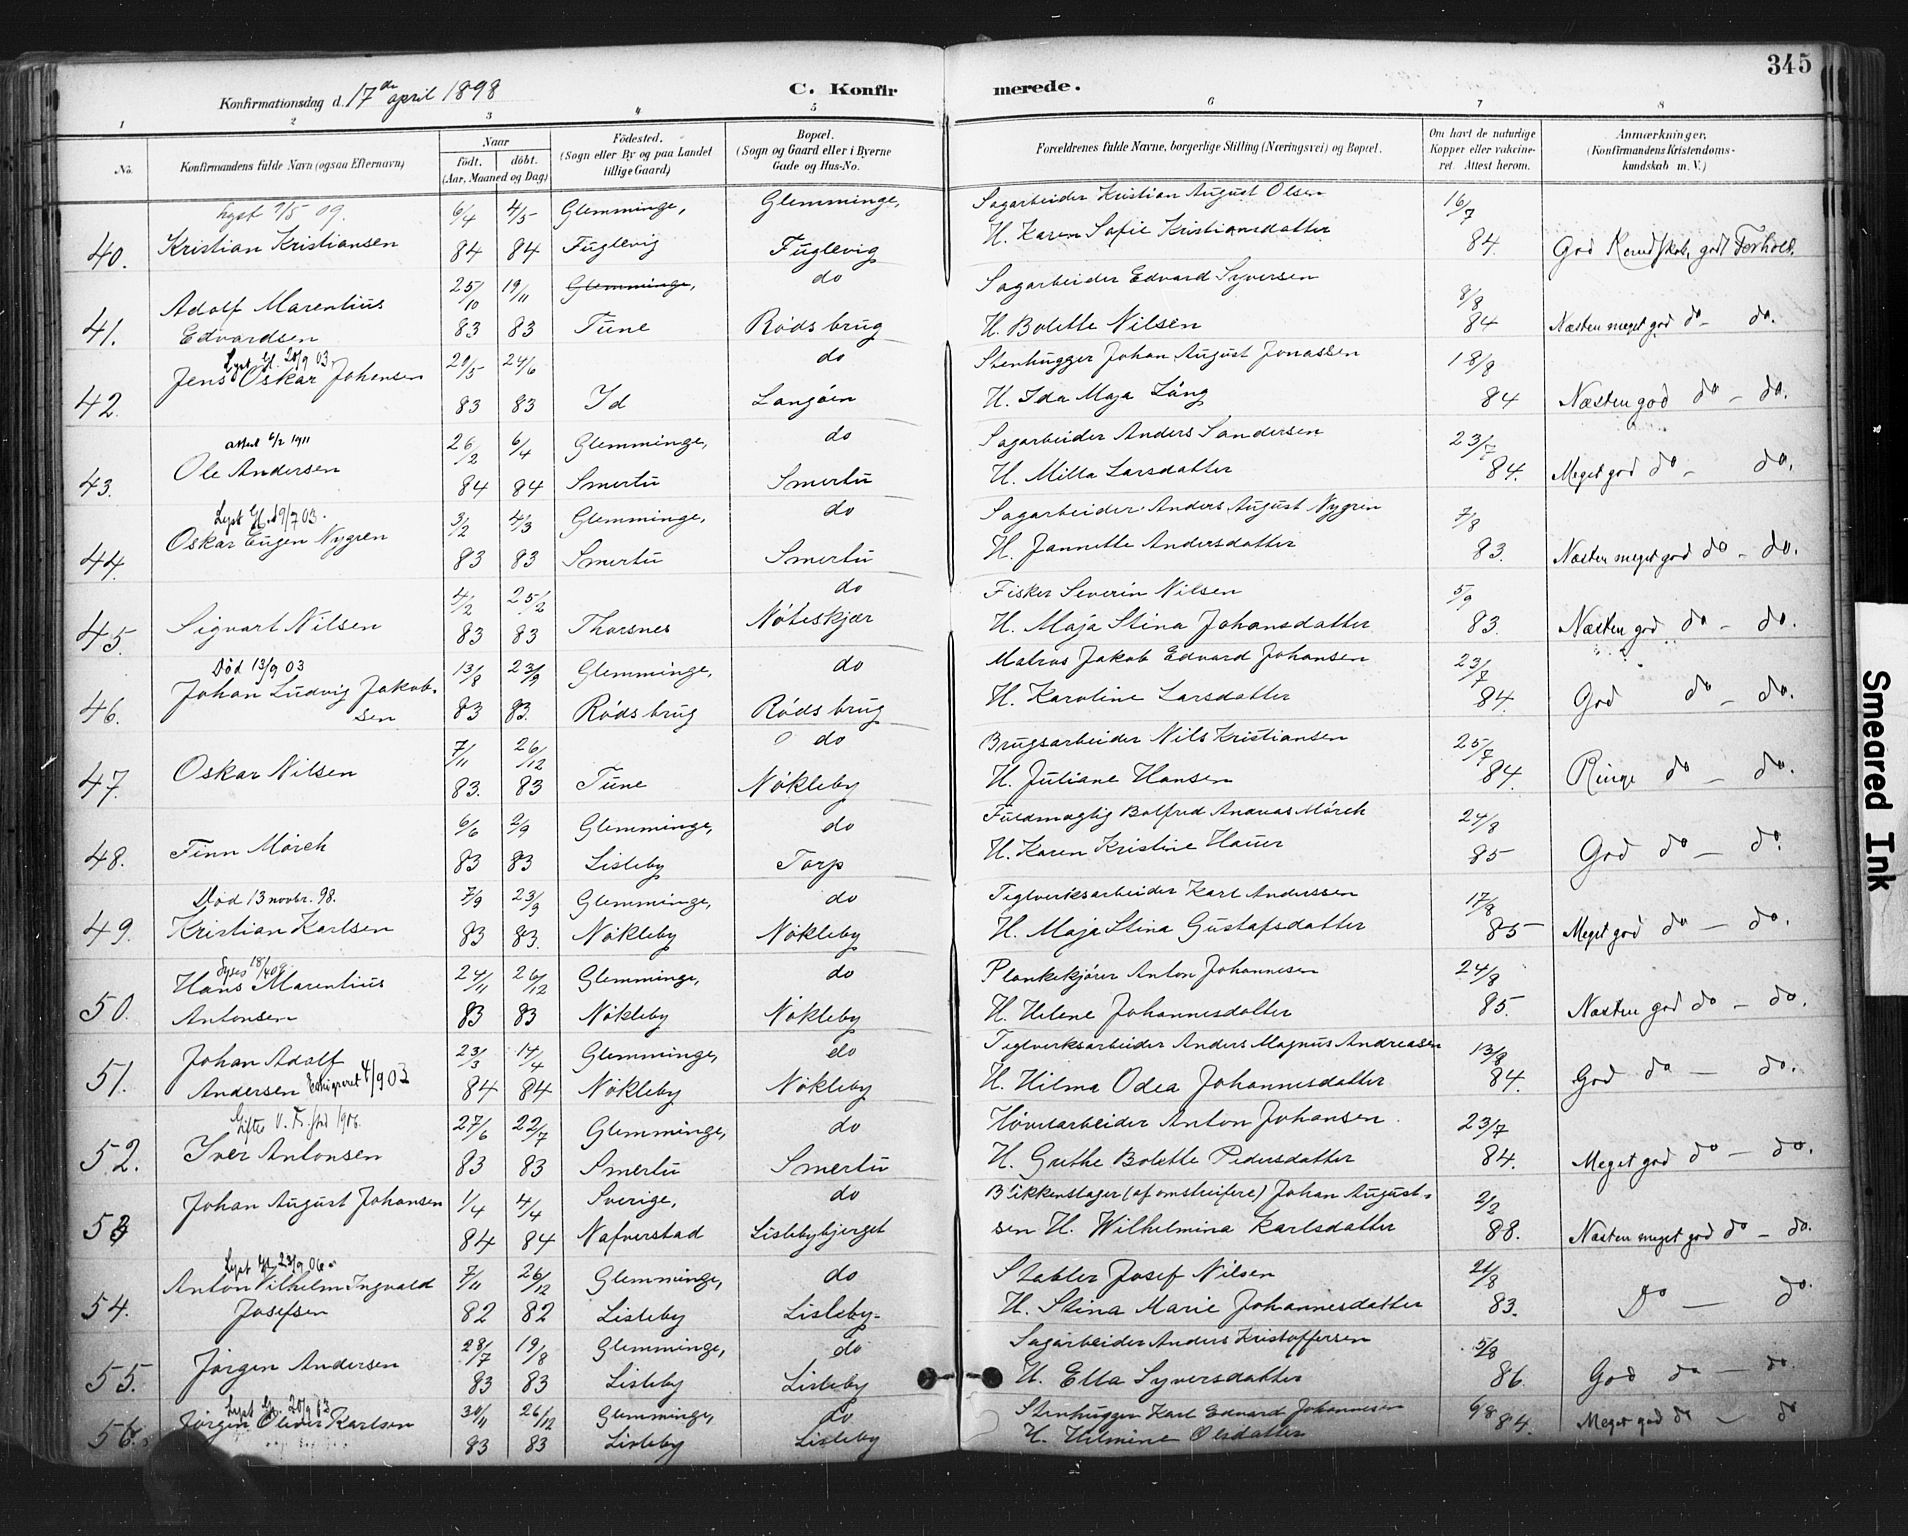 345
Konfirmationsdag d. 17de april 1898 C. Konfirmerede.
1 2 3 4 5 6 7 8
No. Konfirmandens fulde Navn (ogsaa Efternavn) Naar født, døbt. (Aar, Maaned og Dag) Fødested. (Sogn eller By og paa Landet tillige Gaard) Bopæl. (Sogn og Gaard eller i Byerne Gade og Hus-No. Forældrenes fulde Navne, borgerlige Stilling (Næringsvei) og Bopæl. Om havt de naturlige Kopper eller vakcineret. Attest herom. Anmærkninger, (Konfirmandens Kristendomskundskab m. V.)
Lyst 9/5 09. 6/4 4/5 Glemminge, Glemminge, Sagarbeider Kristian August Olsen 16/7
40. Kristian Kristiansen 84 84 Fuglevig Fuglevig H. Karen Sofie Kristiansdatter 84. God Kundskab, godt Forhold.
Adolf Marentius 25/10 19/11 Glemminge, do Sagarbeider Edvard Syversen 8/8
41. Edvardsen 83 83 Tune Røds brug H. Bolette Nilsen 84 Næsten meget god do - do.
Lyst Gl. 20/9 03. 24/6 do Stenhugger Johan August Jonassen 18/8
42. Jens Oskar Johansen 83 83 Id Langøen H. Ida Maja Lång 84 Næsten god do - do.
attest 6/2 1911 26/2 6/4 Glemminge, do Sagarbeider Anders Sandersen 23/7
43. Ole Andersen 84 84 Smertu Smertu H. Milla Larsdatter 84. Meget god do - do.
Lyst Gl. 19/7 03. 3/2 4/3 Glemminge, do Sagarbeider Anders August Nygren 7/8
44. Oskar Eugen Nygren 83 83 Smertu Smertu H. Jannette Andersdatter 83. Næsten meget god do - do.
4/2 25/2 do Fisker Severin Nilsen 5/9
45. Sigvart Nilsen 83 83 Thorsnes Nøteskjær H. Maja Stina Johansdatter 83. Næsten god do - do.
Død 13/9 03 13/8 23/9 Glemminge, do Matros Jakob Edvard Johansen 23/7
46. Johan Ludvig Jakobsen 83 83. Røds brug Røds brug H. Karoline Larsdatter 84. God do - do.
7/11 26/12 do Brugsarbeider Nils Kristiansen 25/7
47. Oskar Nilsen 83. 83 Tune Nøkleby H. Juliane Hansen 84. Ringe do - do.
6/6 2/9 Glemminge, do Fuldmægtig Andreas Mørch 24/8
48. Finn Mørch 83 83 Lisleby Torp H. Karen Kristine Hauer 85 God do - do.
Død 13 novbr. 98. 7/9 23/9 Glemminge, do Teglverksarbeider Karl Anderssen 17/8
49. Kristian Karlsen 83 83. Nøkleby Nøkleby H. Maja Stina Gustafsdatter 85 Meget god do - do.
Hans Marentius 24/11 26/12 Glemminge, do Plankekjører Anton Johannesen 24/8
50. Antonsen 83 83 Nøkleby Nøkleby H. Helene Johannesdatter 85. Næsten god do - do.
Johan Adolf 23/3 14/4 Glemminge, do Teglverksarbeider Anders Magnus Andreasen 13/8
51. Andersen Emigreret 4/9 03 84 84 Nøkleby Nøkleby H. Hilma Odea Johannesdatter 84. God do - do.
27/6 22/7 Glemminge, do Høvelarbeider Anton Johansen. 23/7
52. Iver Antonsen 83 83 Smertu Smertu H. Grethe Bolette Pedersdatter 84. Meget god do - do.
Johan August Johansen 1/4 4/4 Sverige, do Blikkenslager (af omstreifere) Johan August- 2/2
53 84 84 Nafverstad Lislebybjerget sen H. Wilhelmina Karlsdatter 88. Næsten meget god do - do.
Lyst Gl. 23/9 06 7/11 26/12 Glemminge, do Stabler Josef Nilsen 21/8
Anton Vilhelm Ingvald
54. Josefsen 82 82 Lisleby Lisleby. H. Stina Marie Johannesdatter 83. Do - do.
28/7 19/8 Glemminge, do Sagarbeider Anders Kristoffersen 5/8
55. Jørgen Andersen 83 83 Lisleby Lisleby H. Ella Syversdatter 86. God do - do.
Lyst Gl. 20/9 03 30/11 26/12 Glemminge, do Stenhugger Karl Edvard Johannesen 6/8
56. Jørgen Oliver Karlsen 83 83 Lisleby Lisleby H. Hilmine Olsdatter 84. Meget god do - do
Smeared Ink